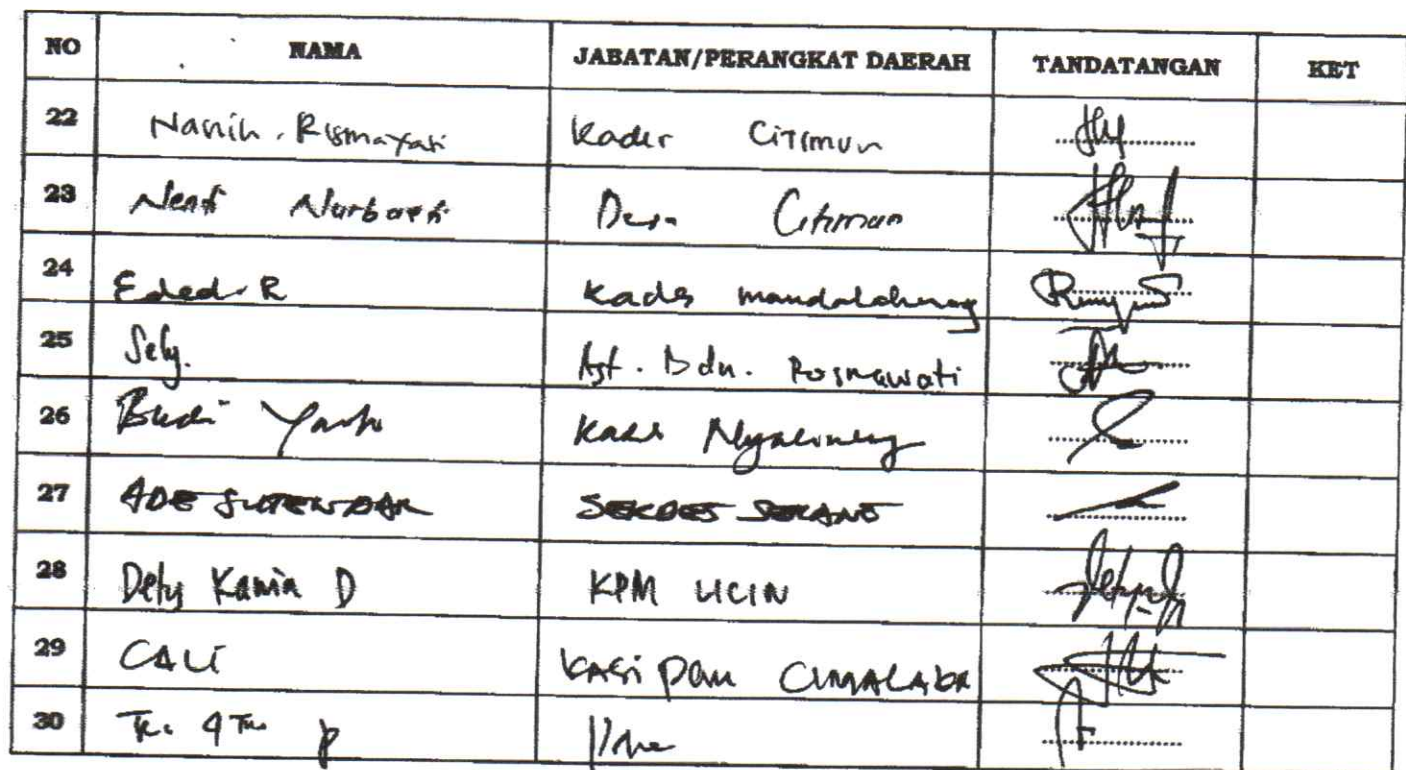 NO NAMA JABATAN/PERANGKAT DAERAH TANDATANGAN KET
22 Nanih. Rismayati Kader Citimun
23 Neni Desa Citimun
24 Eded. R Kades mandalaherang
25 Sely. Ast. Bdn. Rosmawati
26 Budi Kades
27 ADE SUTENDAR SEKDES SEKANG
28 Dety Kania D KPM UCIN
29 CALI KASI PEM CIMALAKA
30